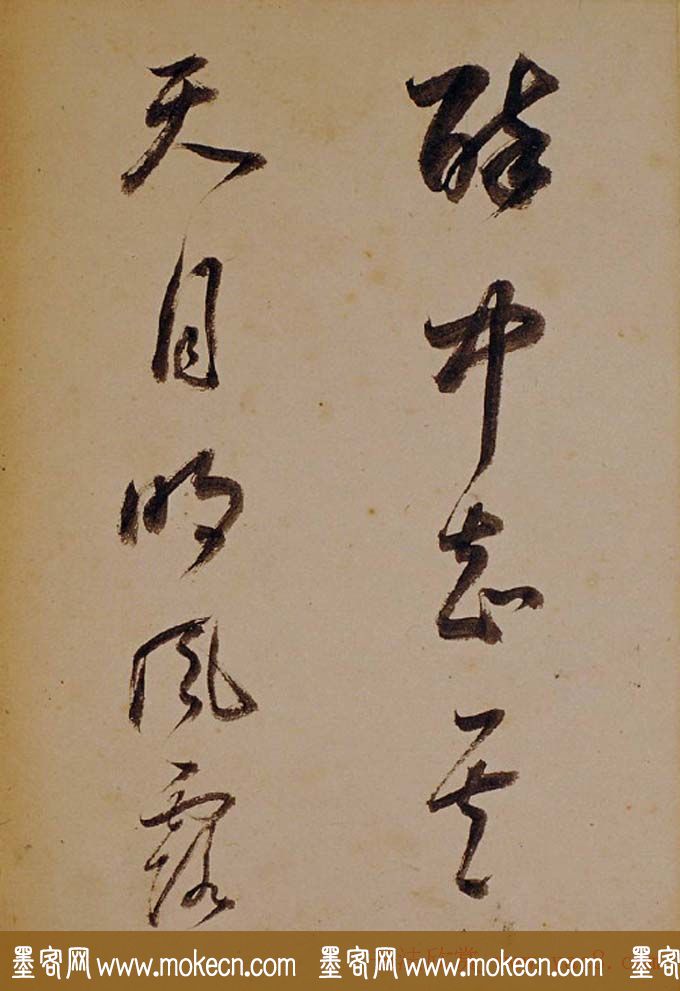 醉中其
天明風露
墨客网 www.mokecn.com 墨客网 www.mokecn.com